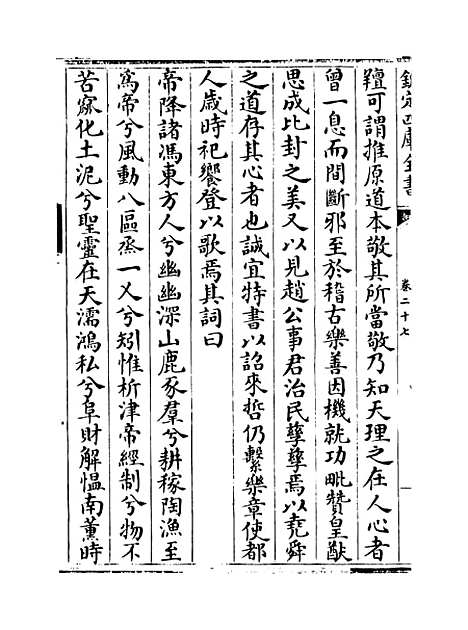 欽定四庫全書
卷二十七
羶可謂推原道本敬其所當敬乃知天理之在人心者
曾一息而間斷邪至於稽古樂善因機就功毗贊皇猷
思成比封之美又以見趙公事君治民孳孳焉以堯舜
之道存其心者也誠宜特書以詔來哲仍繫樂章使都
人歲時祀饗登以歌焉其詞曰
帝降諸馮東方人兮幽幽深山鹿豕羣兮耕稼陶漁至
為帝兮風動八區烝一乂兮矧惟析津帝經制兮物不
苦窳化土泥兮聖靈在天濡鴻私兮阜財解愠南薰時